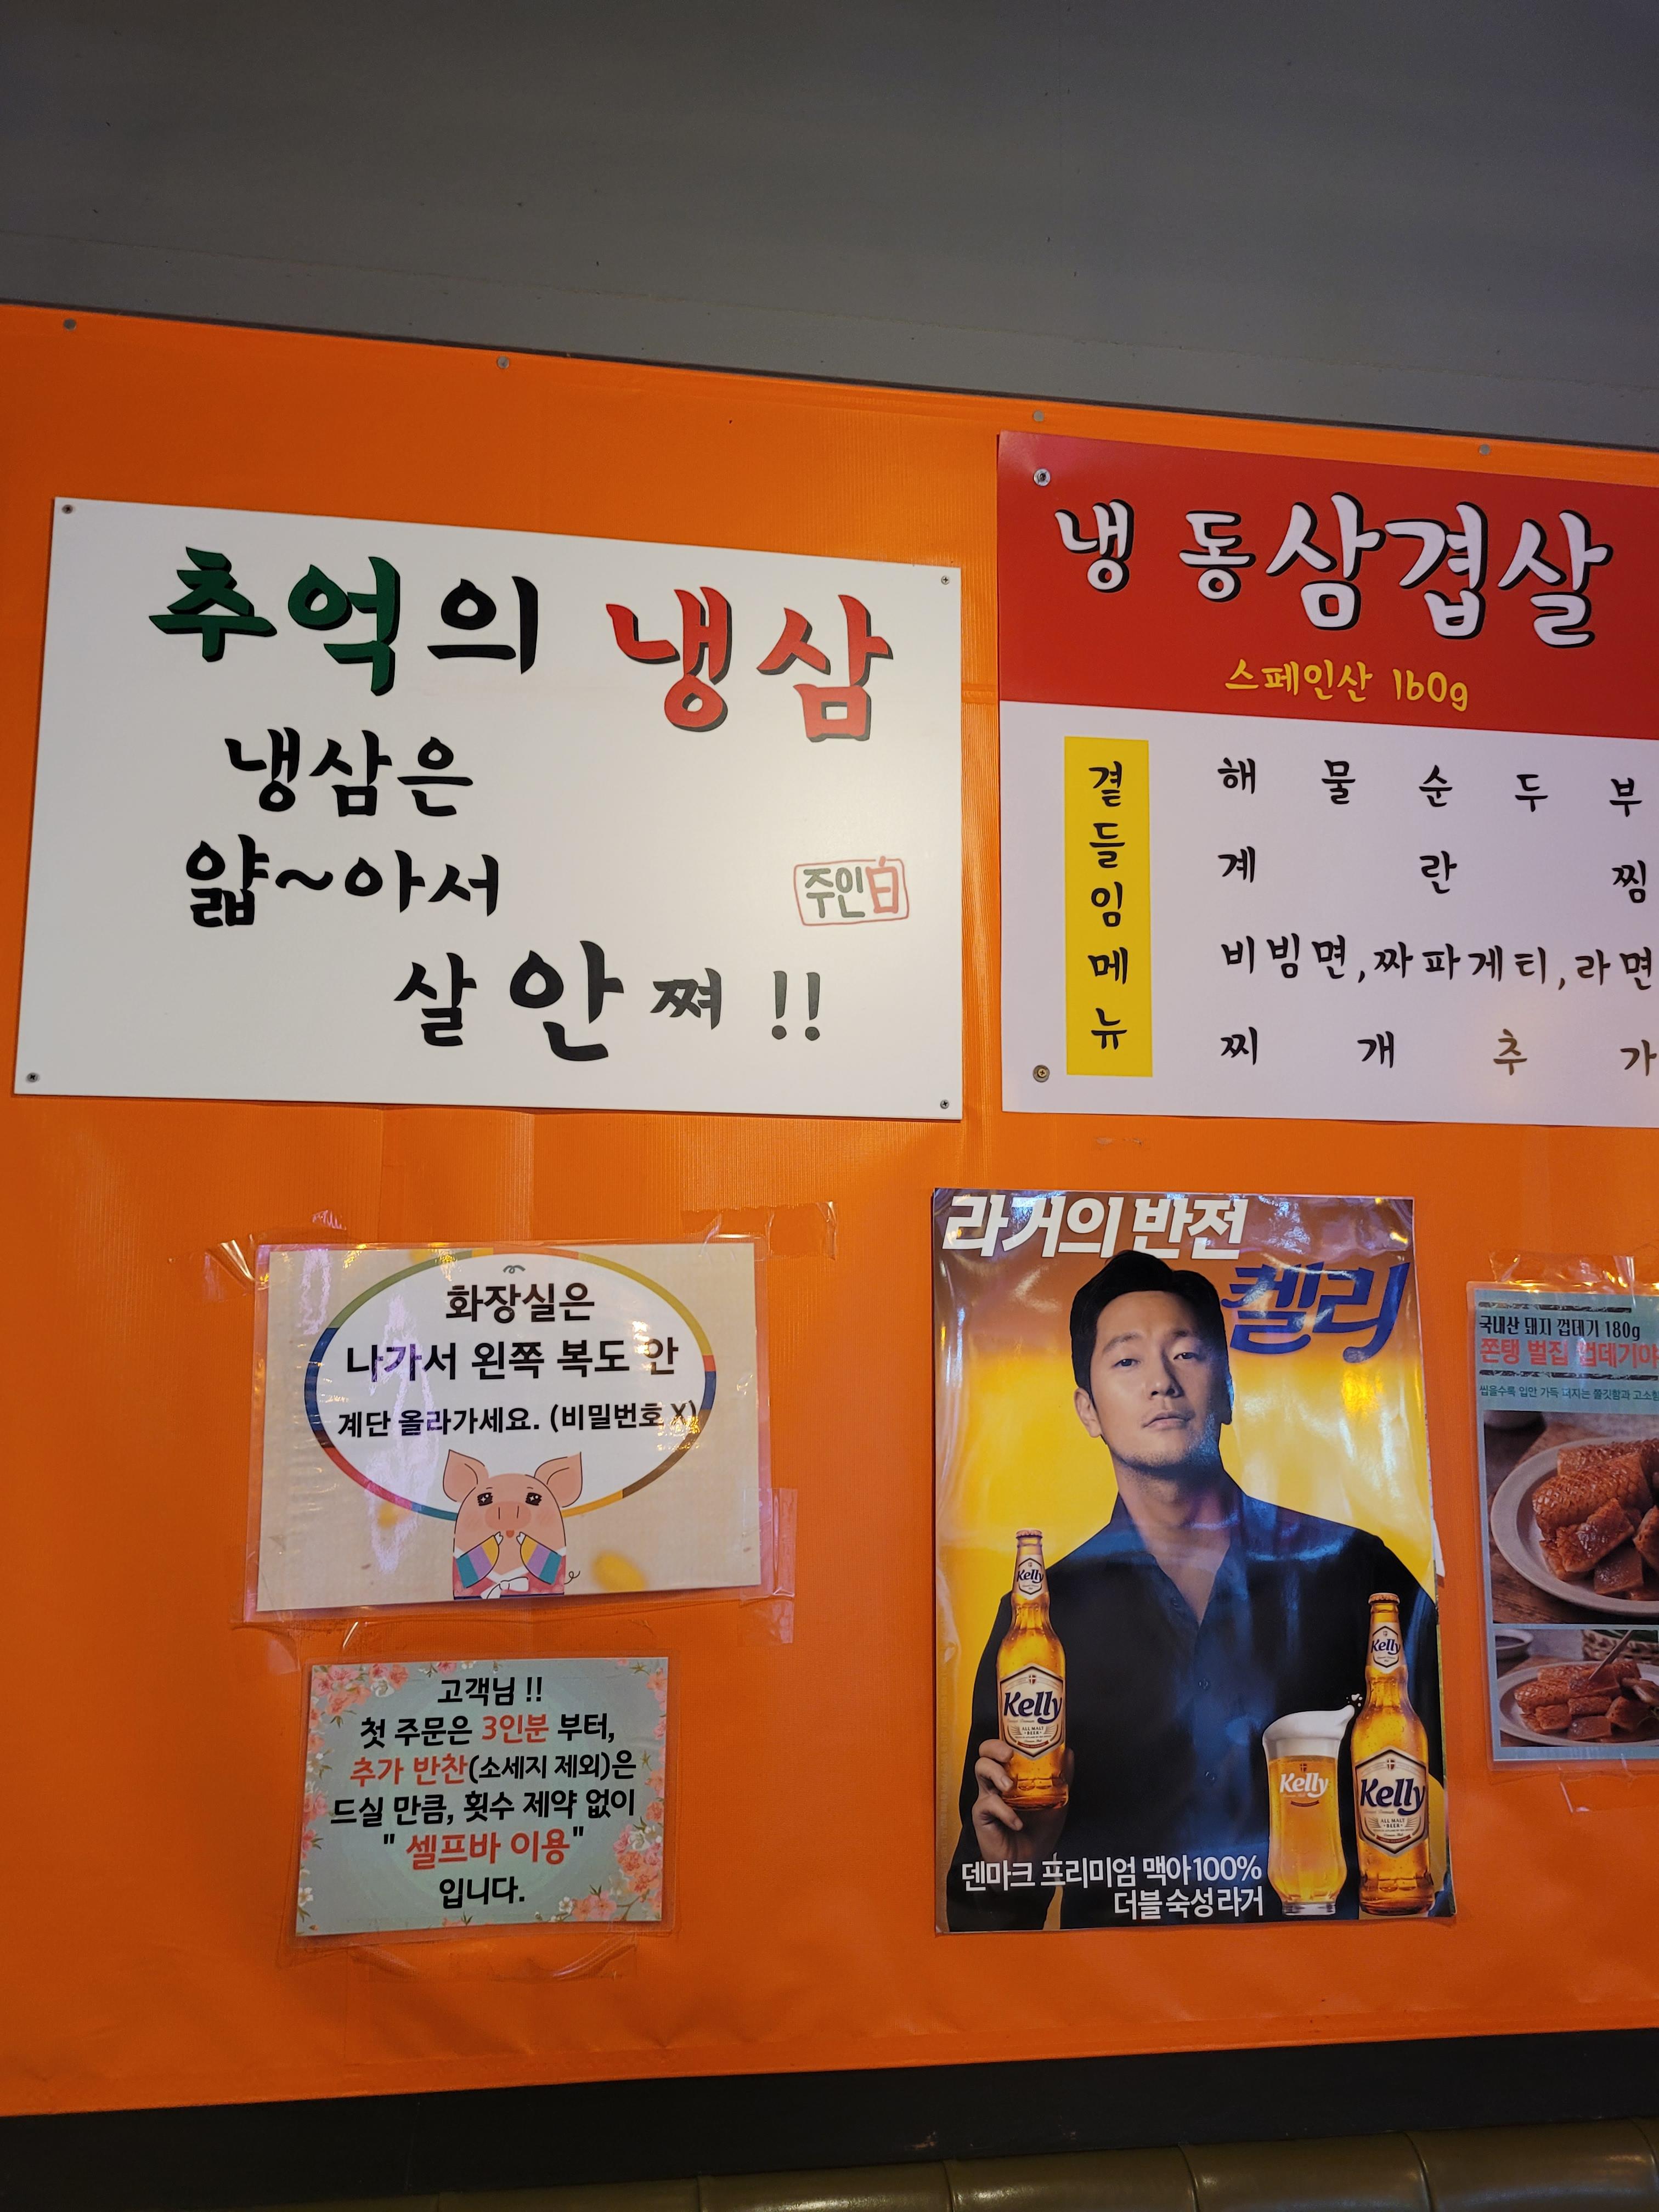 추억의 냉삼
냉삼은
얇~아서
살 안 쪄 !!
주인白
냉 동삼겹살
스페인산 160g
곁들임메뉴
해 물 순 두 부
계 란 찜
비빔면,짜파게티,라면
찌 개 추 가
화장실은
나가서 왼쪽 복도 안
계단 올라가세요. (비밀번호 X)
고객님 !!
첫 주문은 3인분 부터,
추가 반찬(소세지 제외)은
드실 만큼, 횟수 제약 없이
" 셀프바 이용"
입니다.
라거의 반전
켈리
Kelly
Kelly
ALL MALT
BEER
Kelly
Kelly
Kelly
ALL MALT
BEER
덴마크 프리미엄 맥아 100%
더블 숙성 라거
국내산 돼지 껍데기 180g
쫀탱 벌집 껍데기야
씹을수록 입안 가득 퍼지는 쫄깃함과 고소함